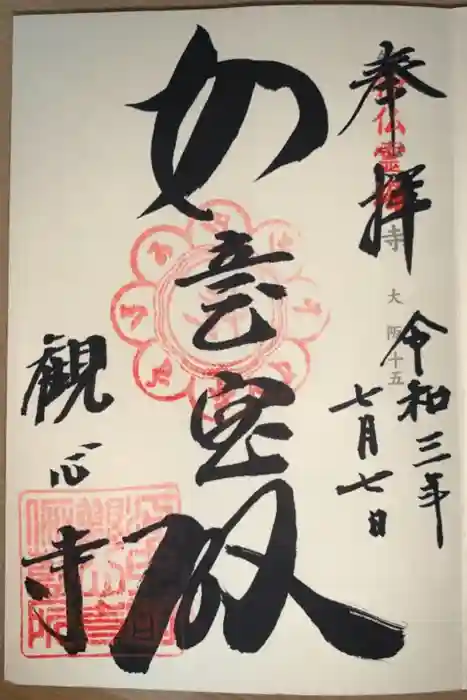 奉拝
令和三年
七月七日
如意宝殿
観心寺
仏霊
寺
大阪十五